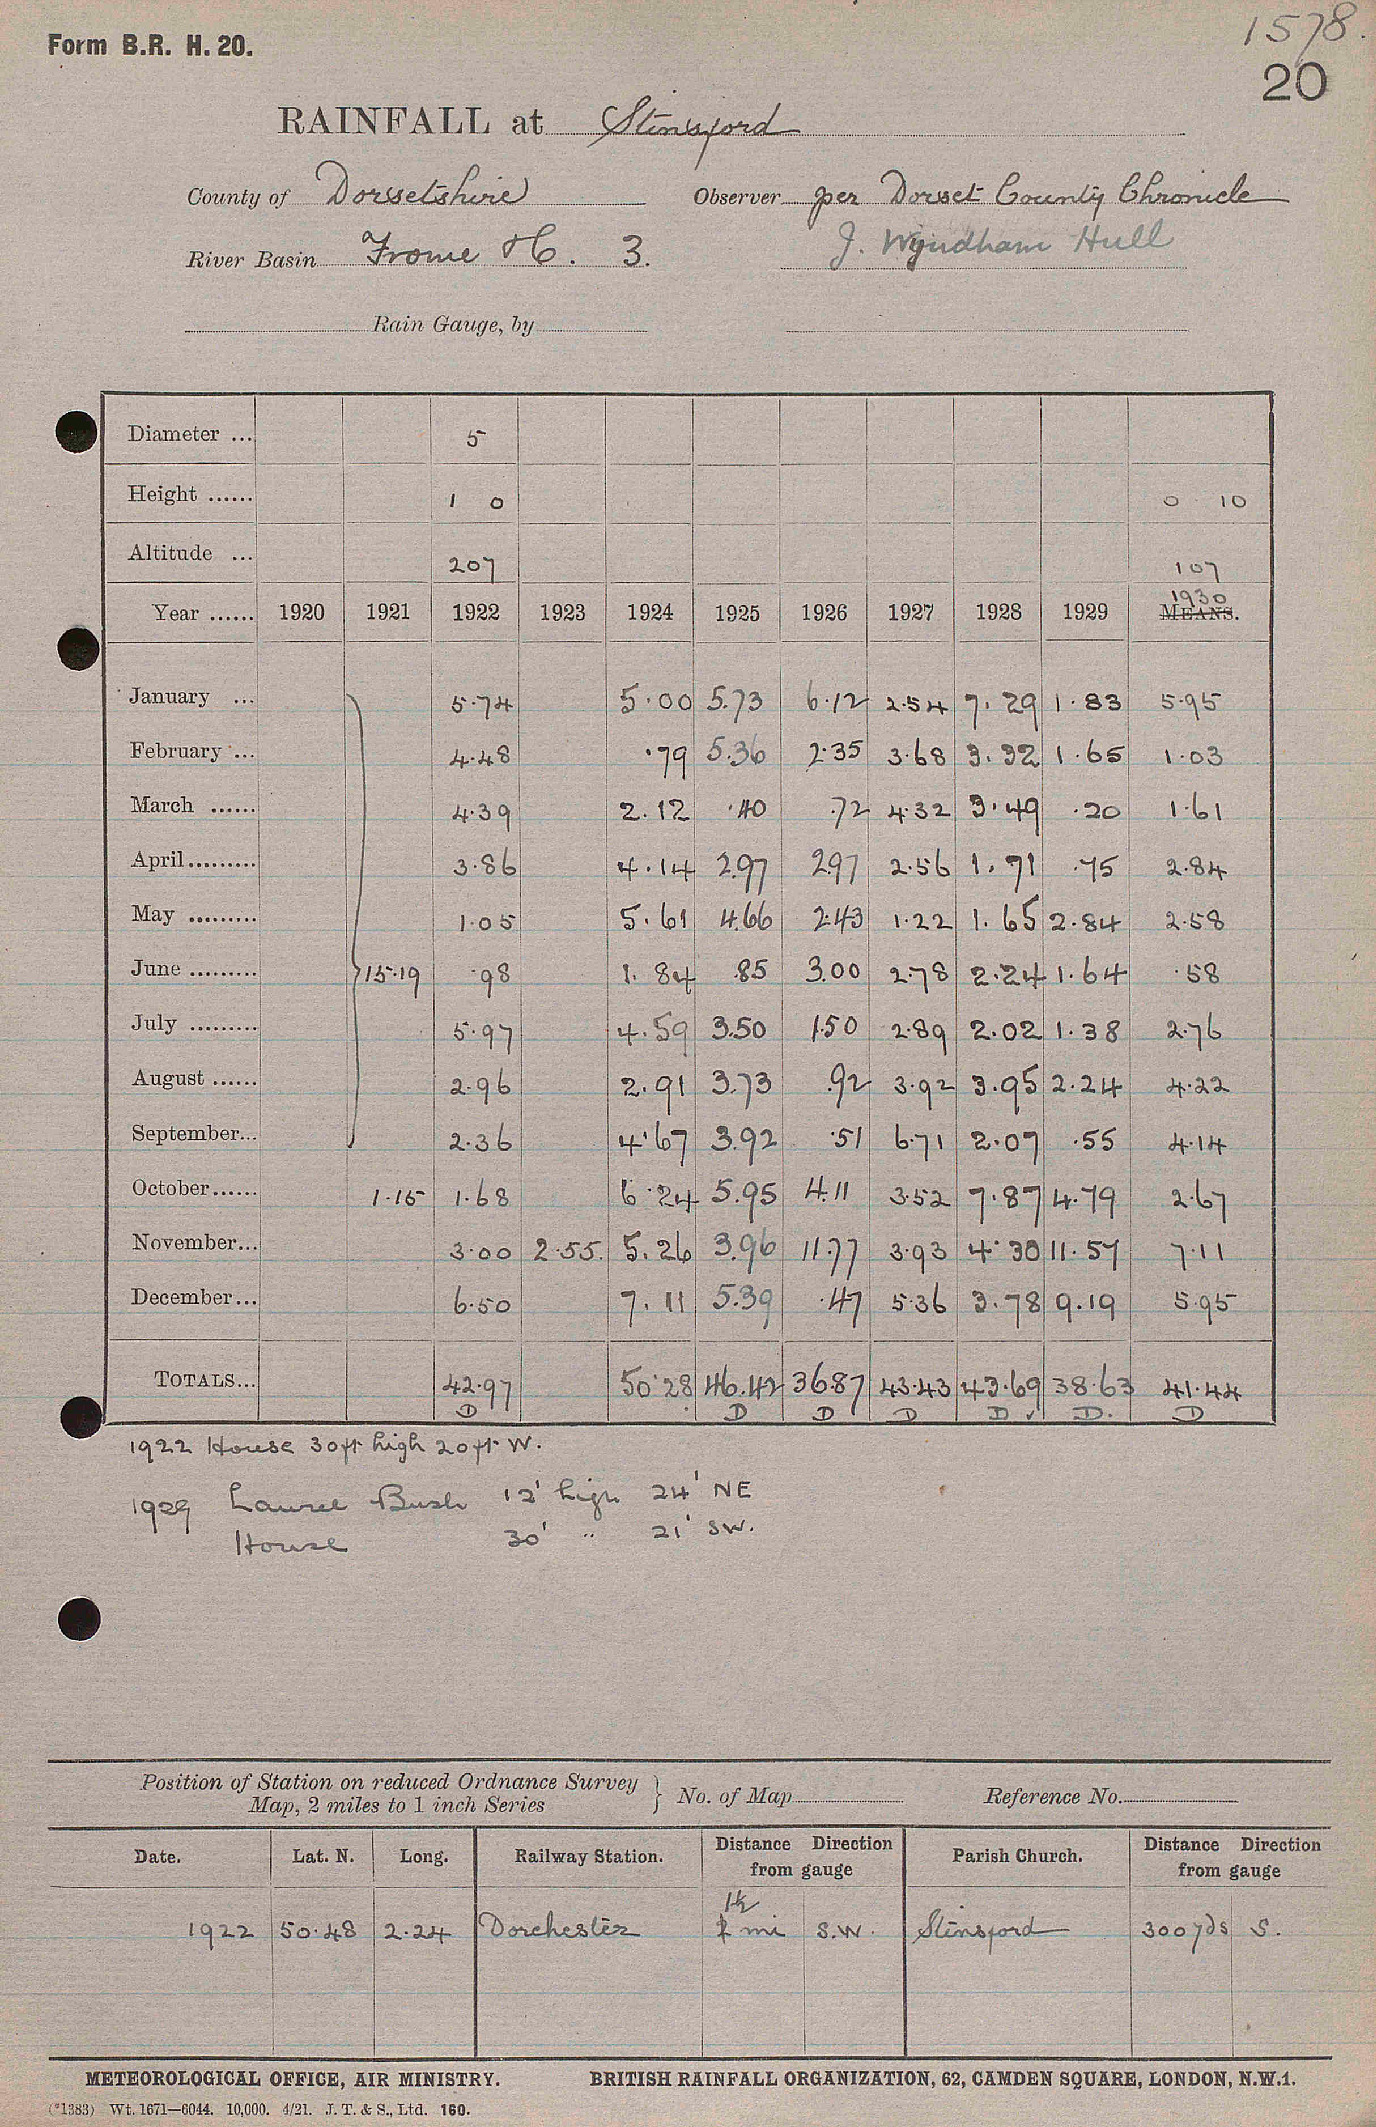 1578.
Form B.R. H. 20.
20
RAINFALL at Stinsford
County of Dorsetshire Observer per Dorset County Chronicle
River Basin Frome H. 3. J. Wyndham Hull
Rain Gauge, by
Diameter ... 5
Height ...... 1 0 0 10
Altitude ... 207 107
1930
Year ...... 1920 1921 1922 1923 1924 1925 1926 1927 1928 1929 MEANS.
January ... 5.74 5.00 5.73 6.12 2.54 7.29 1.83 5.95
February ... 4.48 .79 5.36 2.35 3.68 3.32 1.65 1.03
March ...... 4.39 2.12 .40 .72 4.32 3.49 .20 1.61
April......... 3.86 4.14 2.97 2.97 2.56 1.71 .75 2.84
May ......... 1.05 5.61 4.66 2.43 1.22 1.65 2.84 2.58
June ......... 15.19 .98 1.84 .85 3.00 2.78 2.24 1.64 .58
July ......... 5.97 4.59 3.50 1.50 2.89 2.02 1.38 2.76
August ...... 2.96 2.91 3.73 .92 3.92 3.95 2.24 4.22
September... 2.36 4.67 3.92 .51 6.71 2.07 .55 4.14
October...... 1.15 1.68 6.24 5.95 4.11 3.52 7.87 4.79 2.67
November... 3.00 2.55. 5.26 3.96 11.77 3.93 4.30 11.57 7.11
December... 6.50 7.11 5.39 .47 5.36 3.78 9.19 5.95
TOTALS... 42.97 50.28 46.42 36.87 43.43 43.69 38.63 41.44
D D D D D ✓ D. D
1922 House 30ft high 20ft W.
1929 Laurel Bush 12' high 24' NE
House 30' " 21' SW.
Position of Station on reduced Ordnance Survey
Map, 2 miles to 1 inch Series } No. of Map Reference No.
Date. Lat. N. Long. Railway Station. Distance Direction from gauge Parish Church. Distance Direction from gauge
1½
1922 50.48 2.24 Dorchester mi S.W. Stinsford 300 yds S.
METEOROLOGICAL OFFICE, AIR MINISTRY. BRITISH RAINFALL ORGANIZATION, 62, CAMDEN SQUARE, LONDON, N.W.1.
(*1383) Wt. 1671—6044. 10,000. 4/21. J. T. & S., Ltd. 160.